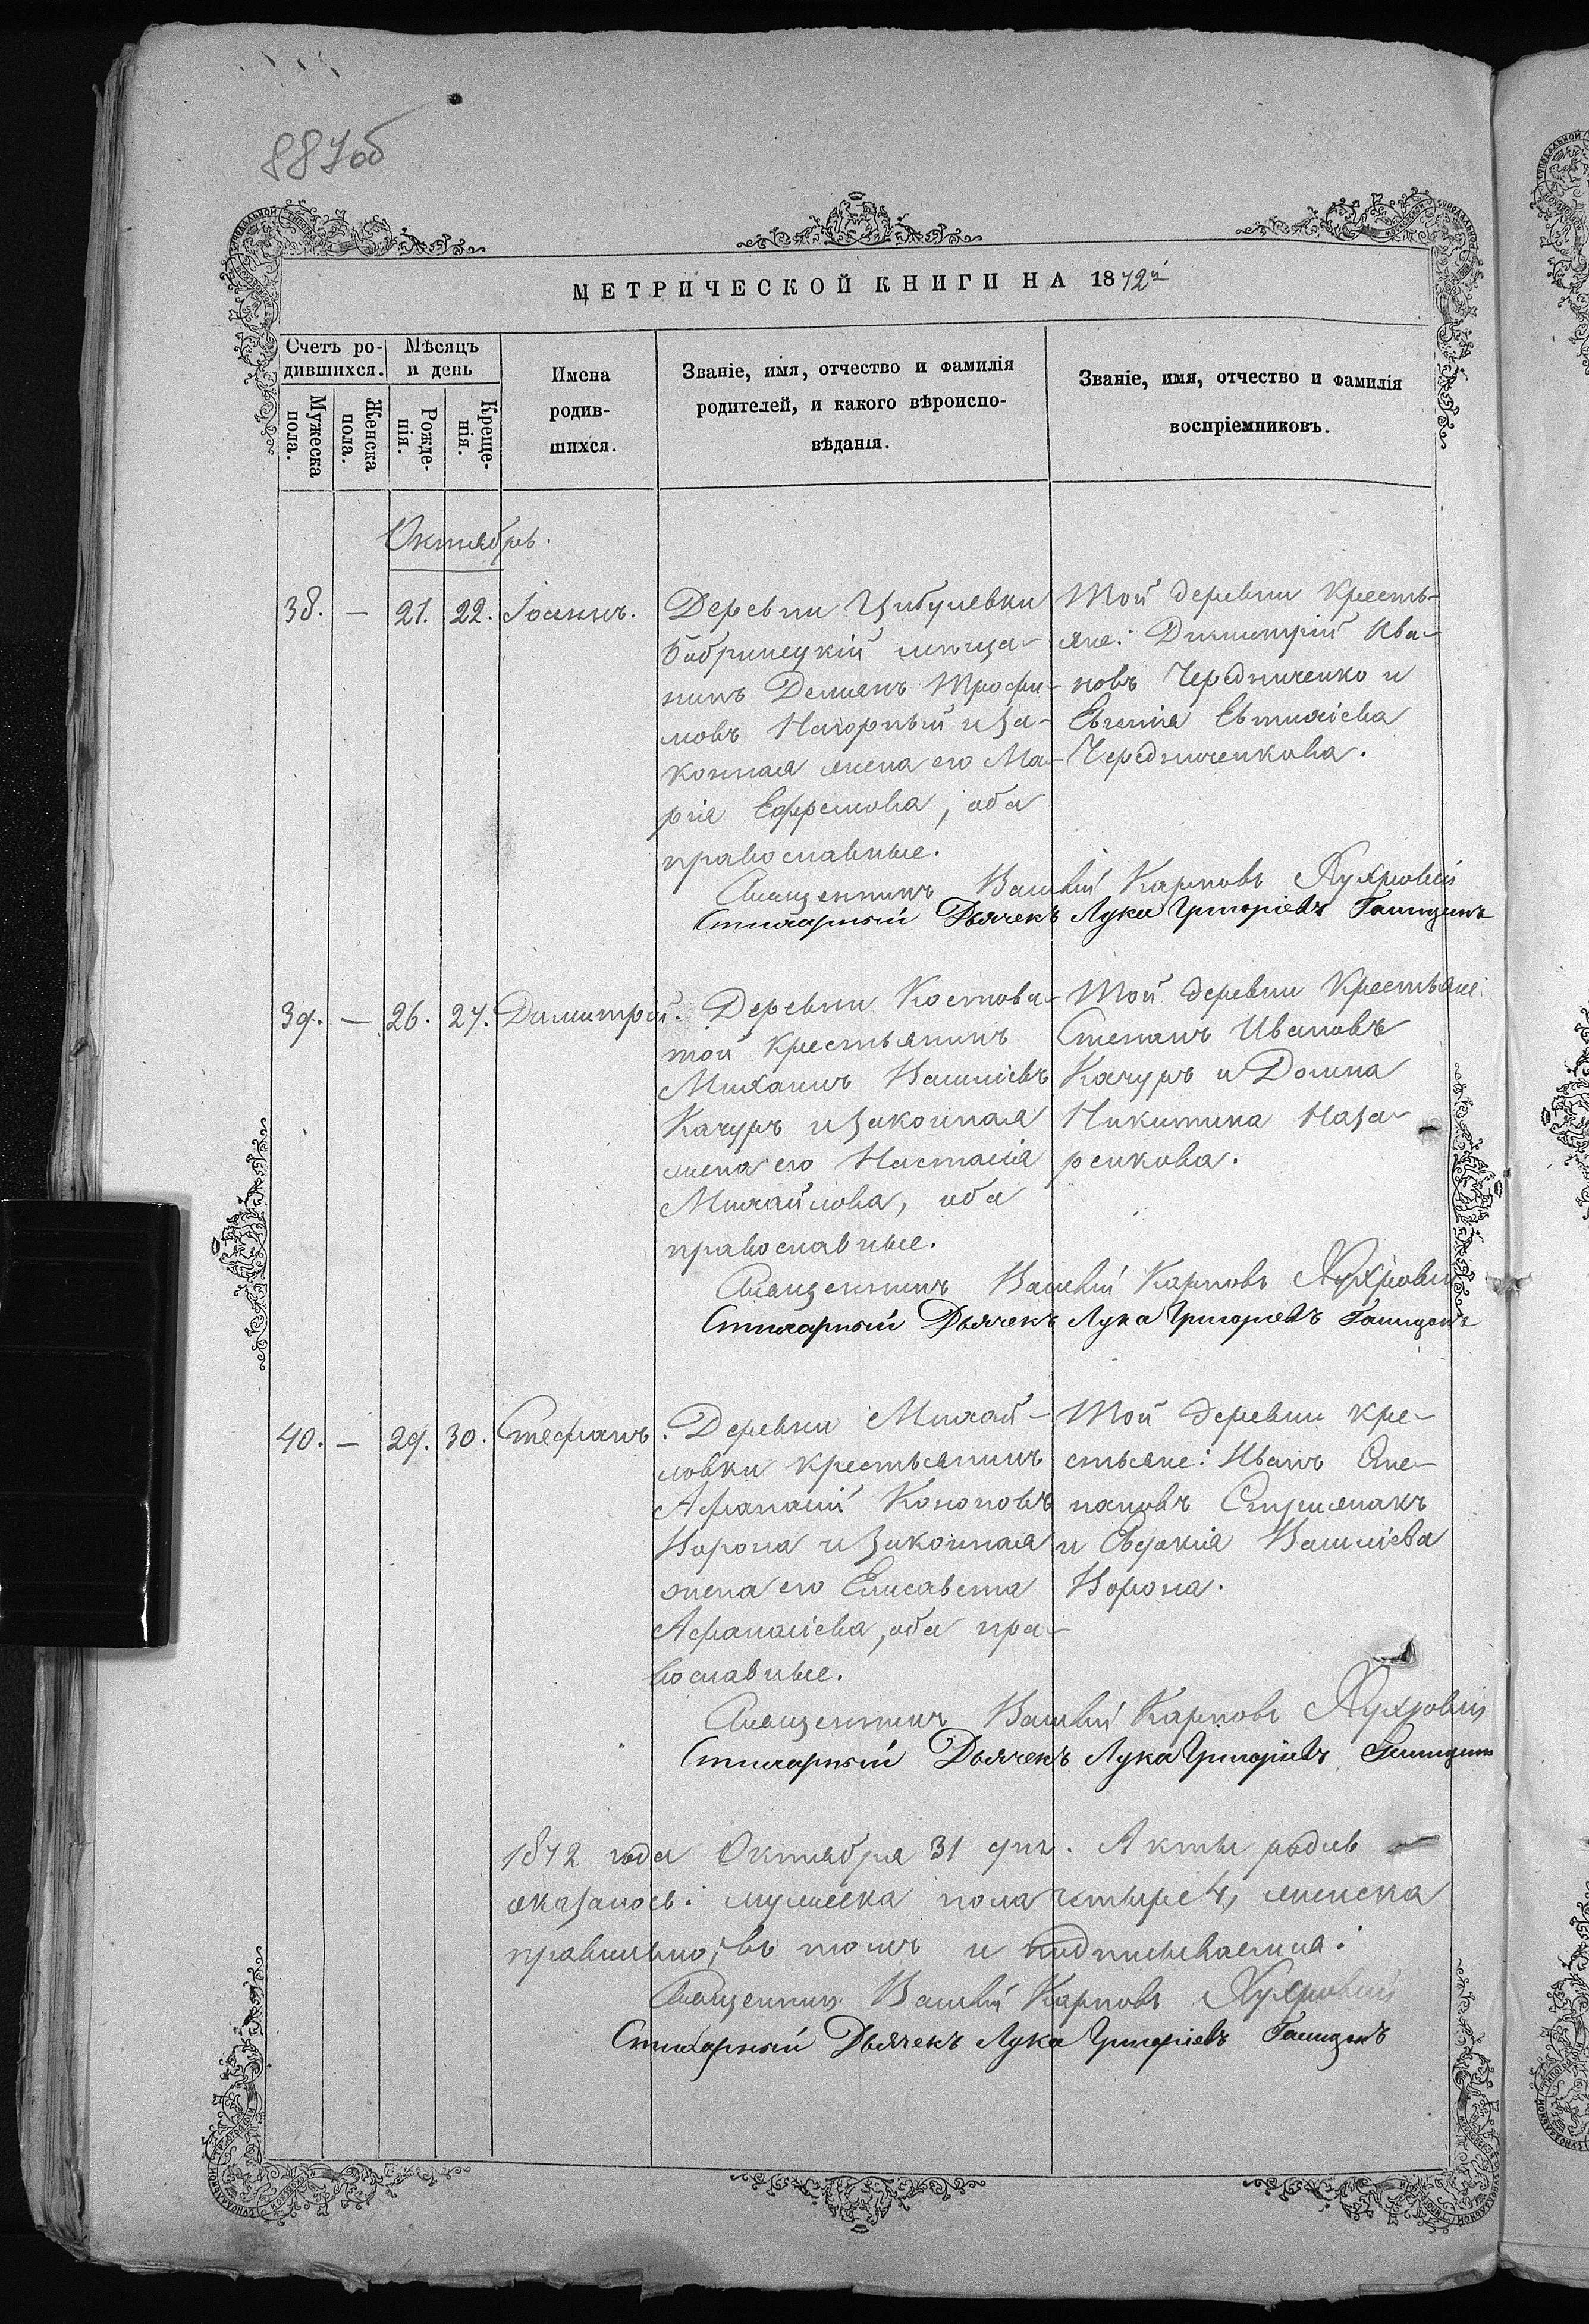 887об
МЕТРИЧЕСКОЙ КНИГИ НА 1872й
Счетъ ро-
дившихся.
Мѣсяцъ
и день
Мужеска
пола.
Женска
пола.
Рожде-
нія.
Креще-
нія.
Имена
родив-
шихся.
Званіе, имя, отчество и фамилія
родителей, и какого вѣроиспо-
вѣданія.
Званіе, имя, отчество и фамилія
воспріемниковъ.
Октябрь.
38. — 21. 22. Іоаннъ.
Деревни Цыбулевки
бобринецкій мѣща-
нинъ Деміанъ Трофи-
мовъ Нагорный и за-
конная жена его Ма-
рія Ефремова, оба
православные.
Той деревни кресть-
яне: Димитрій Ива-
новъ Чередниченко и
Евгенія Евтихіева
Чередниченкова.
Священникъ Василій Карповъ
Стихарный Дьячекъ Лука Григоріевъ
39. — 26. 27. Димитрій.
Деревни Костова-
той крестьянинъ
Михаилъ Василіевъ
Качуръ и законная
жена его Настасія
Михайлова, оба
православные.
Той деревни Крестьяне:
Степанъ Ивановъ
Качуръ и Домна
Никитина Наза-
ренкова.
Священникъ Василій Карповъ
Стихарный Дьячекъ Лука Григоріевъ
40. — 29. 30. Стефанъ.
Деревни Михай-
ловки крестьянинъ
Афанасій Кононовъ
Ворона и законная
жена его Елисавета
Афанасіева, оба пра-
вославные.
Той деревни кре-
стьяне: Иванъ Сте-
пановъ
и Евдокія Василіева
Ворона.
Священникъ Василій Карповъ
Стихарный Дьячекъ Лука Григоріевъ
1872 года Октября 31 дня. Акты родив
оказалось: мужеска пола четыре 4, женска
правильно; въ томъ и подписываемся:
Священникъ Василій Карповъ
Стихарный Дьячекъ Лука Григоріевъ